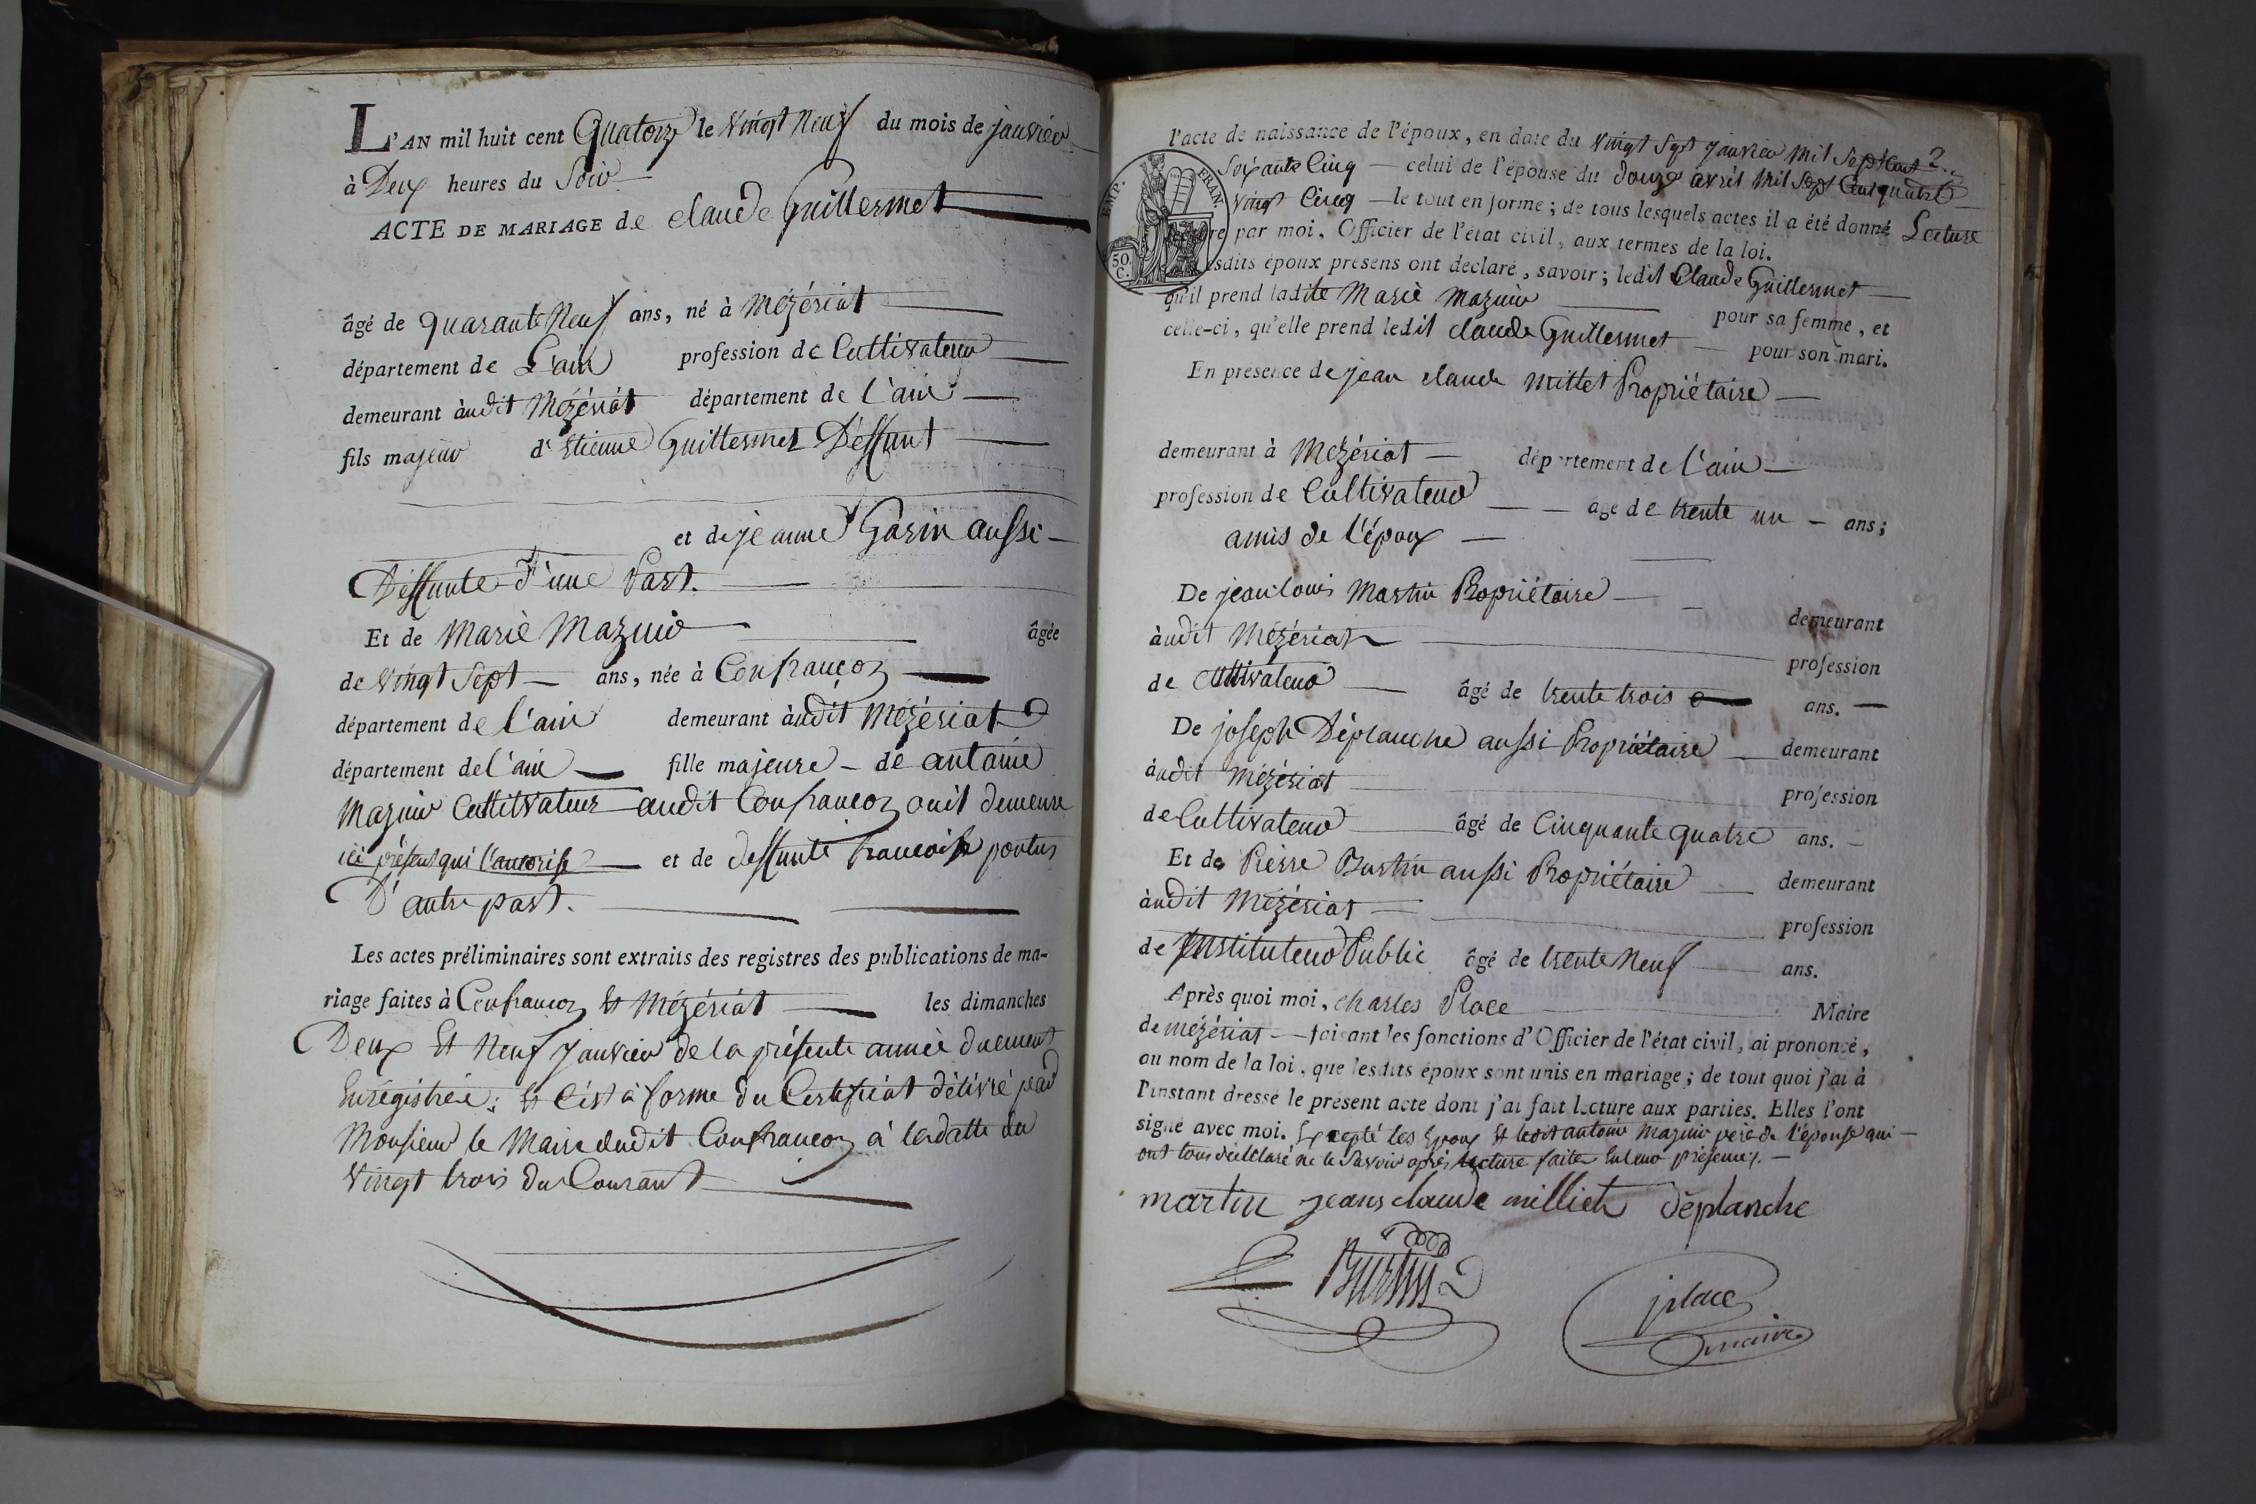 L'AN mil huit cent Quatorze le vingt neuf du mois de janvier
à Deux heures du Soir
ACTE DE MARIAGE de claude Guillermet
âgé de quarante neuf ans, né à Mézériat
département de L'ain profession de Cultivateur
demeurant àudit Mézériat département de L'ain
fils majeur d'Etienne Guillermet Déffunt
et de jeanne Garin aussi
Déffunte d'une Part.
Et de Marie Mazuir âgée
de vingt Sept ans, née à Confrançon
département de L'ain demeurant àudit Mézériat
département de L'ain fille majeure de antoine
Mazuir Cultivateur audit Confrançon ou il demeure
ici présent qui l'autorise et de deffunte francoise pontus
D'autre part.
Les actes préliminaires sont extraits des registres des publications de ma-
riage faites à Confrancon Et Mézériat les dimanches
Deux Et Neuf Janvier de la présente année duement
Enregistrée; Et C'est à forme du Certificat délivré par
Monsieur le Maire dudit Confrancon à la datte du
vingt trois du Courant
l'acte de naissance de l'époux, en date du vingt Sept janvier Mil Sept Cent
EMP. FRAN. Soixante Cinq celui de l'épouse du douze avril Mil Sept Cent quatre
vingt Cinq le tout en forme; de tous lesquels actes il a été donné Lecture
50. C. par moi, Officier de l'état civil, aux termes de la loi.
Lesdits époux présens ont déclaré, savoir; ledit Claude Guillermet
qu'il prend ladite Marie Mazuir pour sa femme, et
celle-ci, qu'elle prend ledit claude Guillermet pour son mari.
En présence de jean claude Millet Propriétaire
demeurant à Mézériat département de L'ain
profession de Cultivateur âgé de trente un ans;
amis de l'époux
De jean louis Martin Propriétaire demeurant
àudit Mézériat profession
de Cultivateur âgé de trente trois ans.
De joseph Déplanche aussi Propriétaire demeurant
àudit Mézériat profession
de Cultivateur âgé de Cinquante quatre ans.
Et de Pierre Burtin aussi Propriétaire demeurant
àudit Mézériat profession
de Instituteur Public âgé de trente Neuf ans.
Après quoi moi, charles Place Maire
de Mézériat faisant les fonctions d'Officier de l'état civil, ai prononcé,
au nom de la loi, que lesdits époux sont unis en mariage; de tout quoi j'ai à
l'instant dressé le présent acte dont j'ai fait lecture aux parties. Elles l'ont
signé avec moi. Excepté les Epoux Et ledit antoine Mazuir père de l'épouse qui
ont tous déclaré ne le Savoir après lecture faite En leur présence.
martin jean claude milliet déplanche
Burtin
place
maire